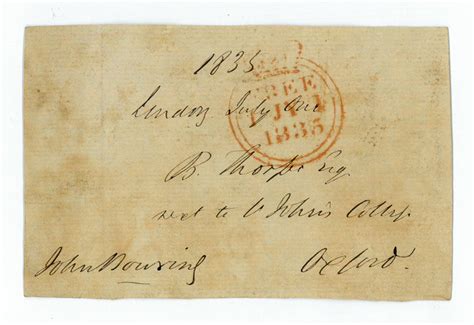 1835
London July One
FREE
1 JY 1
1835
B. Thorpe Esq
next to St Johns College
John Bowring
Oxford.